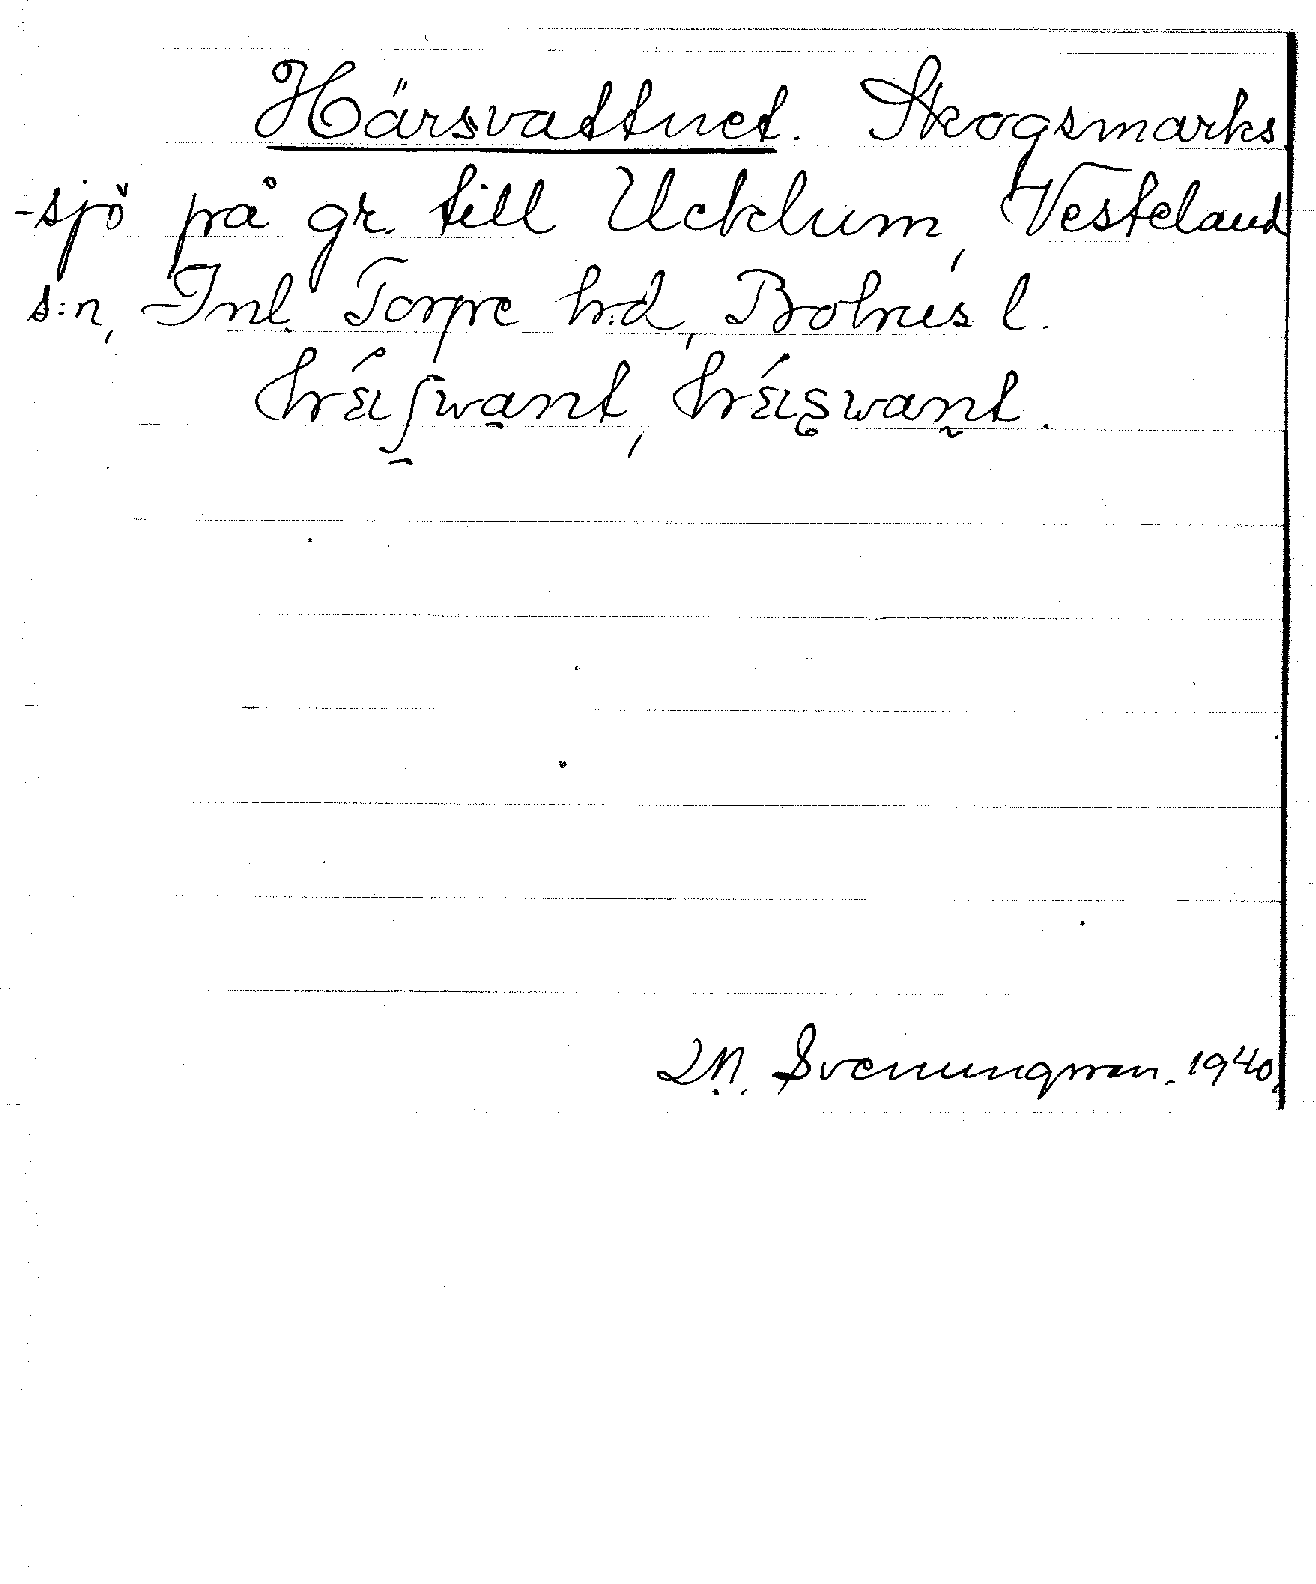 Härsvattnet. Skogsmarks
-sjö på gr. till Ucklum, Vesteland
s:n, Inl. Torpe h:d, Bohus l.
M. Svenungsson. 1940.